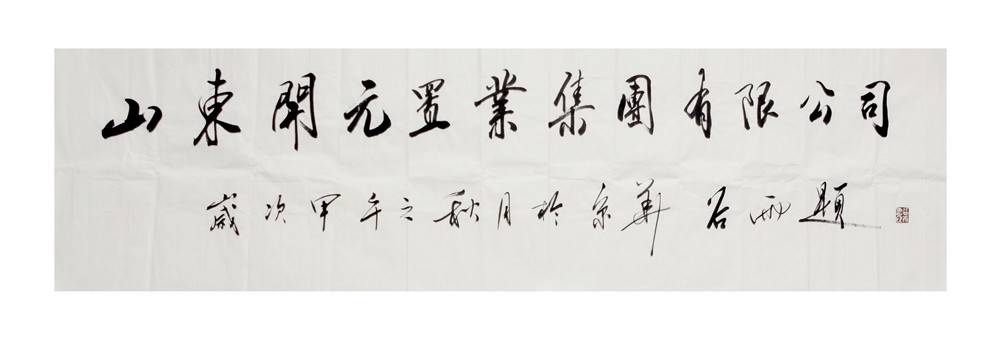 山東開元置業集團有限公司
歲次甲午之秋月於京華 谷雨題